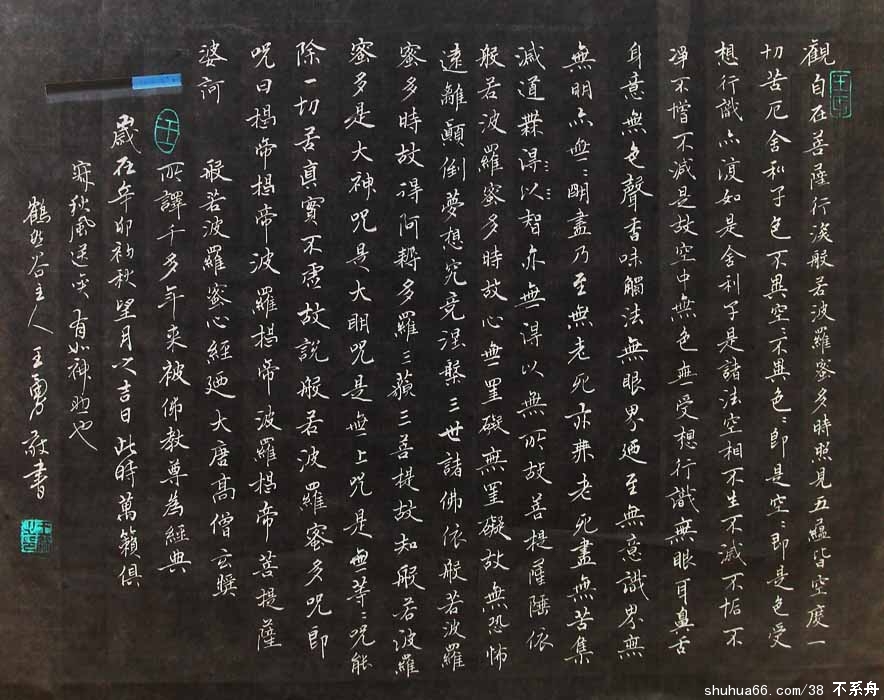 觀自在菩薩行深般若波羅蜜多時照見五蘊皆空度一
切苦厄舍利子色不異空〻不異色〻即是空〻即是色受
想行識亦復如是舍利子是諸法空相不生不滅不垢不
淨不增不減是故空中無色無受想行識無眼耳鼻舌
身意無色聲香味觸法無眼界廼至無意識界無
無明亦無〻明盡乃至無老死亦無老死盡無苦集
滅道無得以智亦無得以無所故菩提薩埵依
般若波羅蜜多時故心無罣礙無罣礙故無恐怖
遠離顛倒夢想究竟涅槃三世諸佛依般若波羅
蜜多時故得阿耨多羅三藐三菩提故知般若波羅
蜜多是大神咒是大明咒是無上咒是無等〻咒能
除一切苦真實不虛故說般若波羅蜜多咒即
咒曰揭帝揭帝波羅揭帝波羅揭帝菩提薩
婆訶 般若波羅蜜心經廼大唐高僧玄奘
所譯千多年來被佛教尊為經典
歲在年卯初秋望月以吉日此時萬籟俱
寐秋風送爽有如神助也
鶴谷主人王勇敬書
shuhua66.com/38 不系舟